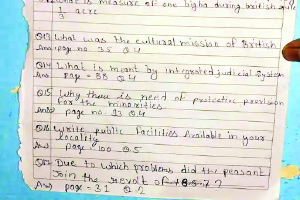 measure of one bigha during british rule
1/3 acre
Q13 What was the cultural mission of British
Ans page no. 35 Q4
Q14 What is meant by integrated judicial system
Ans Page - 88 Q4
Q15 Why there is need of protective provision
for the minorities
Ans page no. 93 Q4
Q16 Write public facilities Available in your
locality
Ans page 100 Q.5
Q17 Due to which problems did the peasant
Join the revolt of 1857?
Ans page - 31 Q2